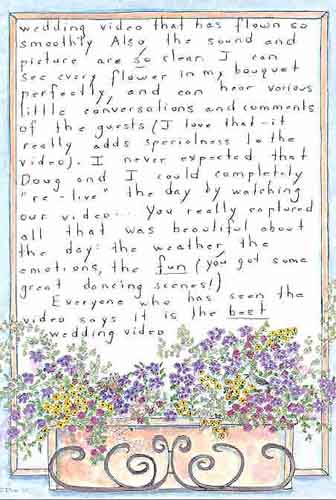 wedding video that has flown so
smoothly Also the sound and
picture are so clear. I can
see every flower in my bouquet
perfectly, and can hear various
little conversations and comments
of the guests (I love that-it
really adds specialness to the
video). I never expected that
Doug and I could completely
"re-live" the day by watching
our video... You really captured
all that was beautiful about
the day: the weather, the
emotions, the fun (you got some
great dancing scenes!)
Everyone who has seen the
video says it is the best
wedding video